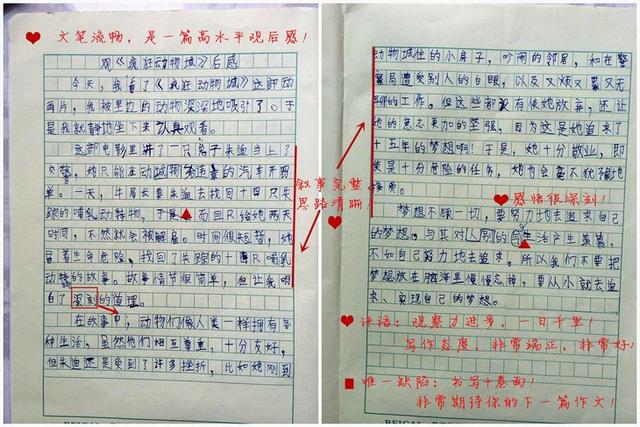 文笔流畅，是一篇高水平观后感！
观《疯狂动物城》后感
今天，我看了《疯狂动物城》这部动
画片，我被里边的动物深深地吸引了。于
是我就静静地坐下来认真观看。
这部电影里讲了一只兔朱迪当上了
交警，她只能在动城物给违章的汽车开罚
单。一天，牛局长要朱迪去找回十四只失
踪的哺乳动物，而且只给她两天
时间，不然就会被解雇。时间很短暂，她
冒着生命危险，找回了失踪的十四只哺乳
动物的故事。故事情节很简单，但让我明
白了深刻的道理。
在故事中，动物们像人类一样拥有各
种生活。虽然他们相互尊重，十分友好，
但朱迪还是受到了许多挫折，比如她刚到
叙事完整
思路清晰！
动物城住的小房子，吵闹的邻居，和在警
察局遭受别人的白眼，以及又烦又累又无
的工作。但这些都没有使她放弃，还让
她的意志更加的坚强，因为这是她追求了
十五年的梦想啊！于是，她十分敬业，即
使是十分危险的任务，她也会毫不犹豫地
接受。
感悟很深刻！
梦想不顾一切，要努力地去追求自己
的梦想。与其对别的生活产生羡慕，
不如自己努力地去追求。所以我们不要把
梦想放在脑海里慢慢忘掉，要从小就去追
求、实现自己的梦想。
评语：观察力进步，一日千里！
写作态度，非常端正，非常好！
唯一缺陷：书写+卷面！
非常期待你的下一篇作文！